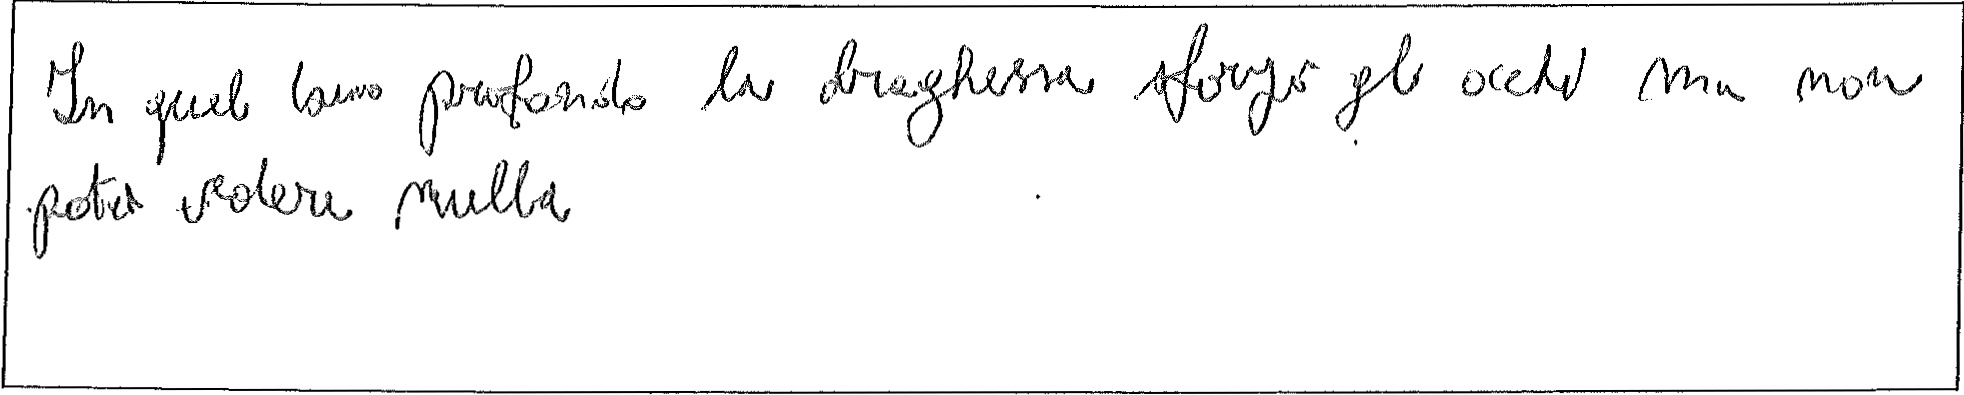 In quel buio profondo la draghessa sforzò gli occhi ma non
poteva vedere nulla